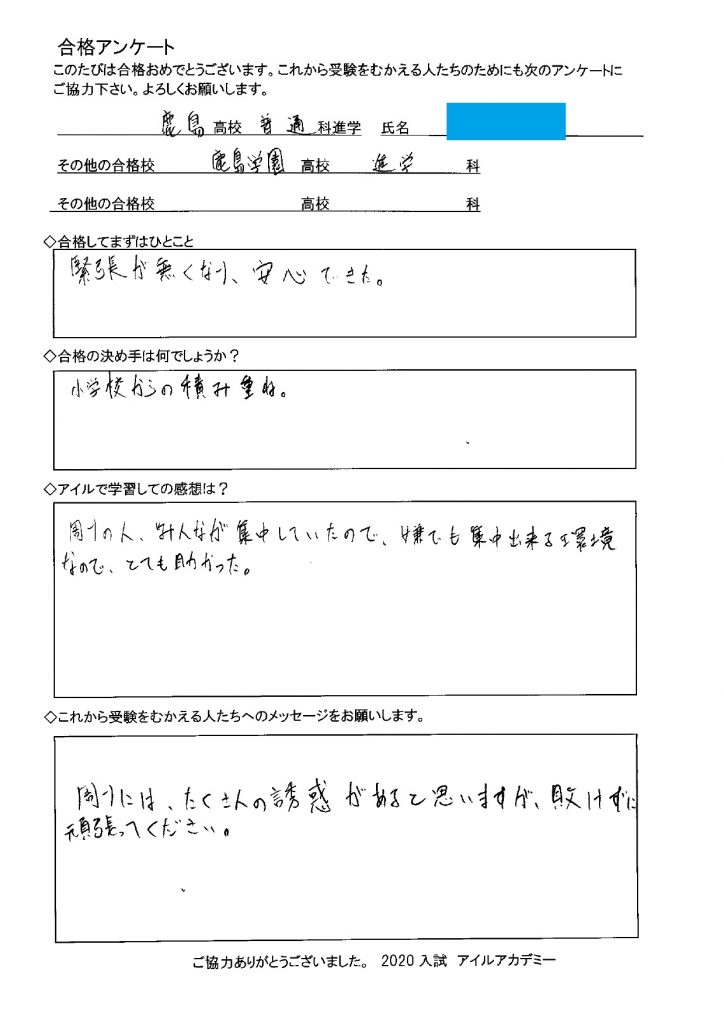 合格アンケート
このたびは合格おめでとうございます。これから受験をむかえる人たちのためにも次のアンケートに
ご協力下さい。よろしくお願いします。
鹿島高校 普通科進学 氏名
その他の合格校 鹿島学園 高校 進学 科
その他の合格校 高校 科
◇合格してまずはひとこと
緊張が無くなり、安心できた。
◇合格の決め手は何でしょうか？
小学校からの積み重ね。
◇アイルで学習しての感想は？
周りの人、みんなが集中していたので、嫌でも集中出来る環境
なので、とても助かった。
◇これから受験をむかえる人たちへのメッセージをお願いします。
周りには、たくさんの誘惑があると思いますが、敗けずに
頑張ってください。
ご協力ありがとうございました。 2020入試 アイルアカデミー